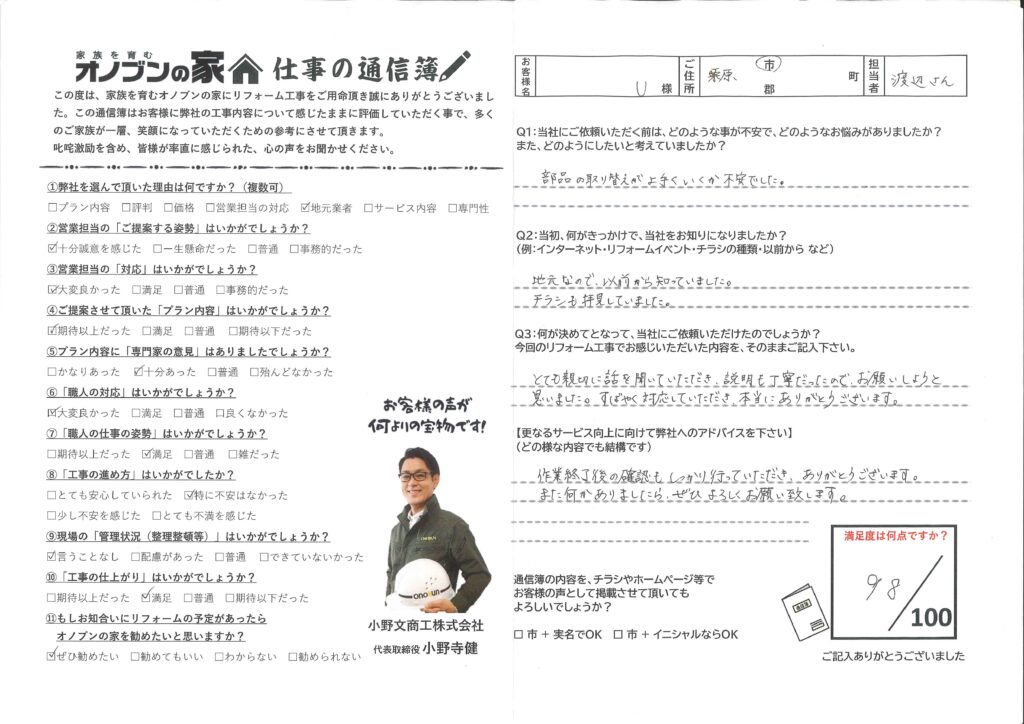 家族を育む
オノブンの家 仕事の通信簿
この度は、家族を育むオノブンの家にリフォーム工事をご用命頂き誠にありがとうございまし
た。この通信簿はお客様に弊社の工事内容について感じたままに評価していただく事で、多く
のご家族が一層、笑顔になっていただくための参考にさせて頂きます。
叱咤激励を含め、皆様が率直に感じられた、心の声をお聞かせください。
①弊社を選んで頂いた理由は何ですか？（複数可）
□プラン内容 □評判 □価格 □営業担当の対応 ☑地元業者 □サービス内容 □専門性
②営業担当の「ご提案する姿勢」はいかがでしょうか？
☑十分誠意を感じた □一生懸命だった □普通 □事務的だった
③営業担当の「対応」はいかがでしょうか？
☑大変良かった □満足 □普通 □事務的だった
④ご提案させて頂いた「プラン内容」はいかがでしょうか？
☑期待以上だった □満足 □普通 □期待以下だった
⑤プラン内容に「専門家の意見」はありましたでしょうか？
□かなりあった ☑十分あった □普通 □殆んどなかった
⑥「職人の対応」はいかがでしょうか？
☑大変良かった □満足 □普通 □良くなかった
⑦「職人の仕事の姿勢」はいかがでしょうか？
□期待以上だった ☑満足 □普通 □雑だった
⑧「工事の進め方」はいかがでしたか？
□とても安心していられた ☑特に不安はなかった
□少し不安を感じた □とても不満を感じた
⑨現場の「管理状況（整理整頓等）」はいかがでしょうか？
☑言うことなし □配慮があった □普通 □できていないかった
⑩「工事の仕上がり」はいかがでしょうか？
□期待以上だった ☑満足 □普通 □期待以下だった
⑪もしお知合いにリフォームの予定があったら
オノブンの家を勧めたいと思いますか？
☑ぜひ勧めたい □勧めてもいい □わからない □勧められない
お客様の声が
何よりの宝物です!
ONOBUN
小野文商工株式会社
代表取締役 小野寺健
お客様名 U 様 ご住所 栗原、 市 郡 町 担当者 渡辺さん
Q1：当社にご依頼いただく前は、どのような事が不安で、どのようなお悩みがありましたか？
また、どのようにしたいと考えていましたか？
部品の取り替えが上手くいくか不安でした。
Q2：当初、何がきっかけで、当社をお知りになりましたか？
（例：インターネット・リフォームイベント・チラシの種類・以前から など）
地元なので、以前から知っていました。
チラシも拝見していました。
Q3：何が決めてとなって、当社にご依頼いただけたのでしょうか？
今回のリフォーム工事でお感じいただいた内容を、そのままご記入下さい。
とても親切に話を聞いていただき、説明も丁寧だったので、お願いしようと
思いました。すばやく対応していただき、本当にありがとうございます。
【更なるサービス向上に向けて弊社へのアドバイスを下さい】
（どの様な内容でも結構です）
作業終了後の確認もしっかり行っていただき、ありがとうございます。
また何かありましたら、ぜひよろしくお願い致します。
満足度は何点ですか？
98/100
通信簿の内容を、チラシやホームページ等で
お客様の声として掲載させて頂いても
よろしいでしょうか？
□ 市 + 実名でOK □ 市 + イニシャルならOK
通信簿
ご記入ありがとうございました